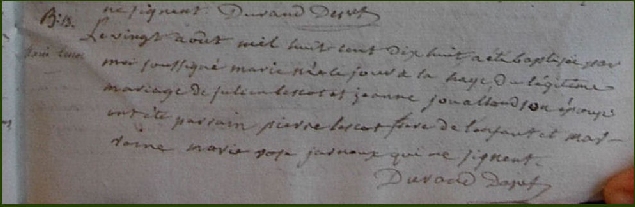 ne signent. Durand Desrt
B: 13.
Le vingt août mil huit cent dix huit a été baptisée par
marie Lescot
moi soussigné marie née le jour à la haye, du légitime
mariage de julien lescot et jeanne jouallaud son épouse
ont été parsain pierre lescot frere de l'enfant et mar-
raine marie rose jarnoux qui ne signent.
Durand Desrt